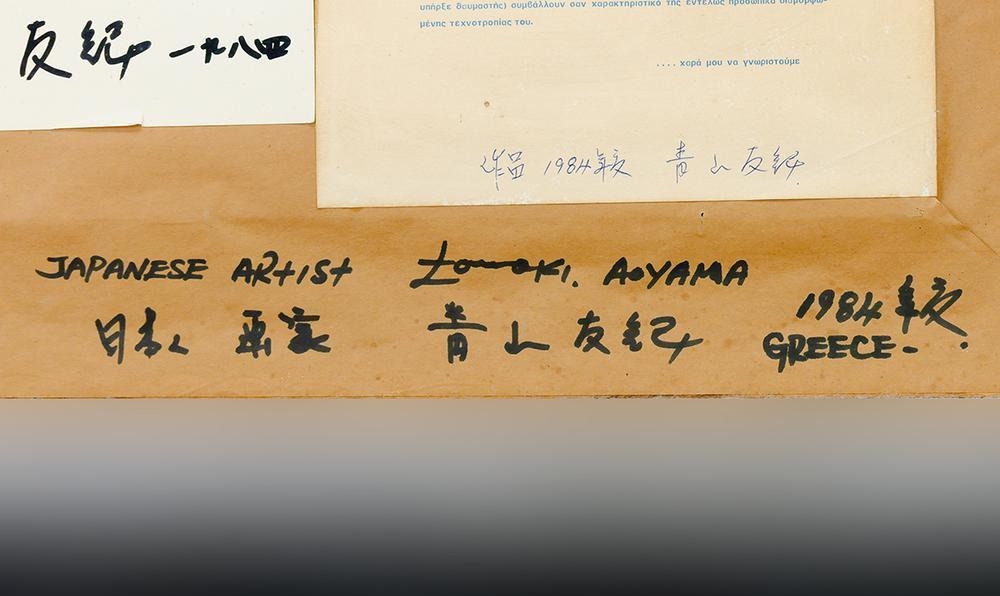 友紀 一九八四
υπήρξε θαυμαστής) συμβάλλουν σαν χαρακτηριστικό της εντελώς προσωπικά διαμορφω-
μένης τεχνοτροπίας του.
.... χαρά μου να γνωριστούμε
作品 1984年 青山友紀
JAPANESE ARTIST Tomoki. AOYAMA
日本人 画家 青山友紀
1984年
GREECE.